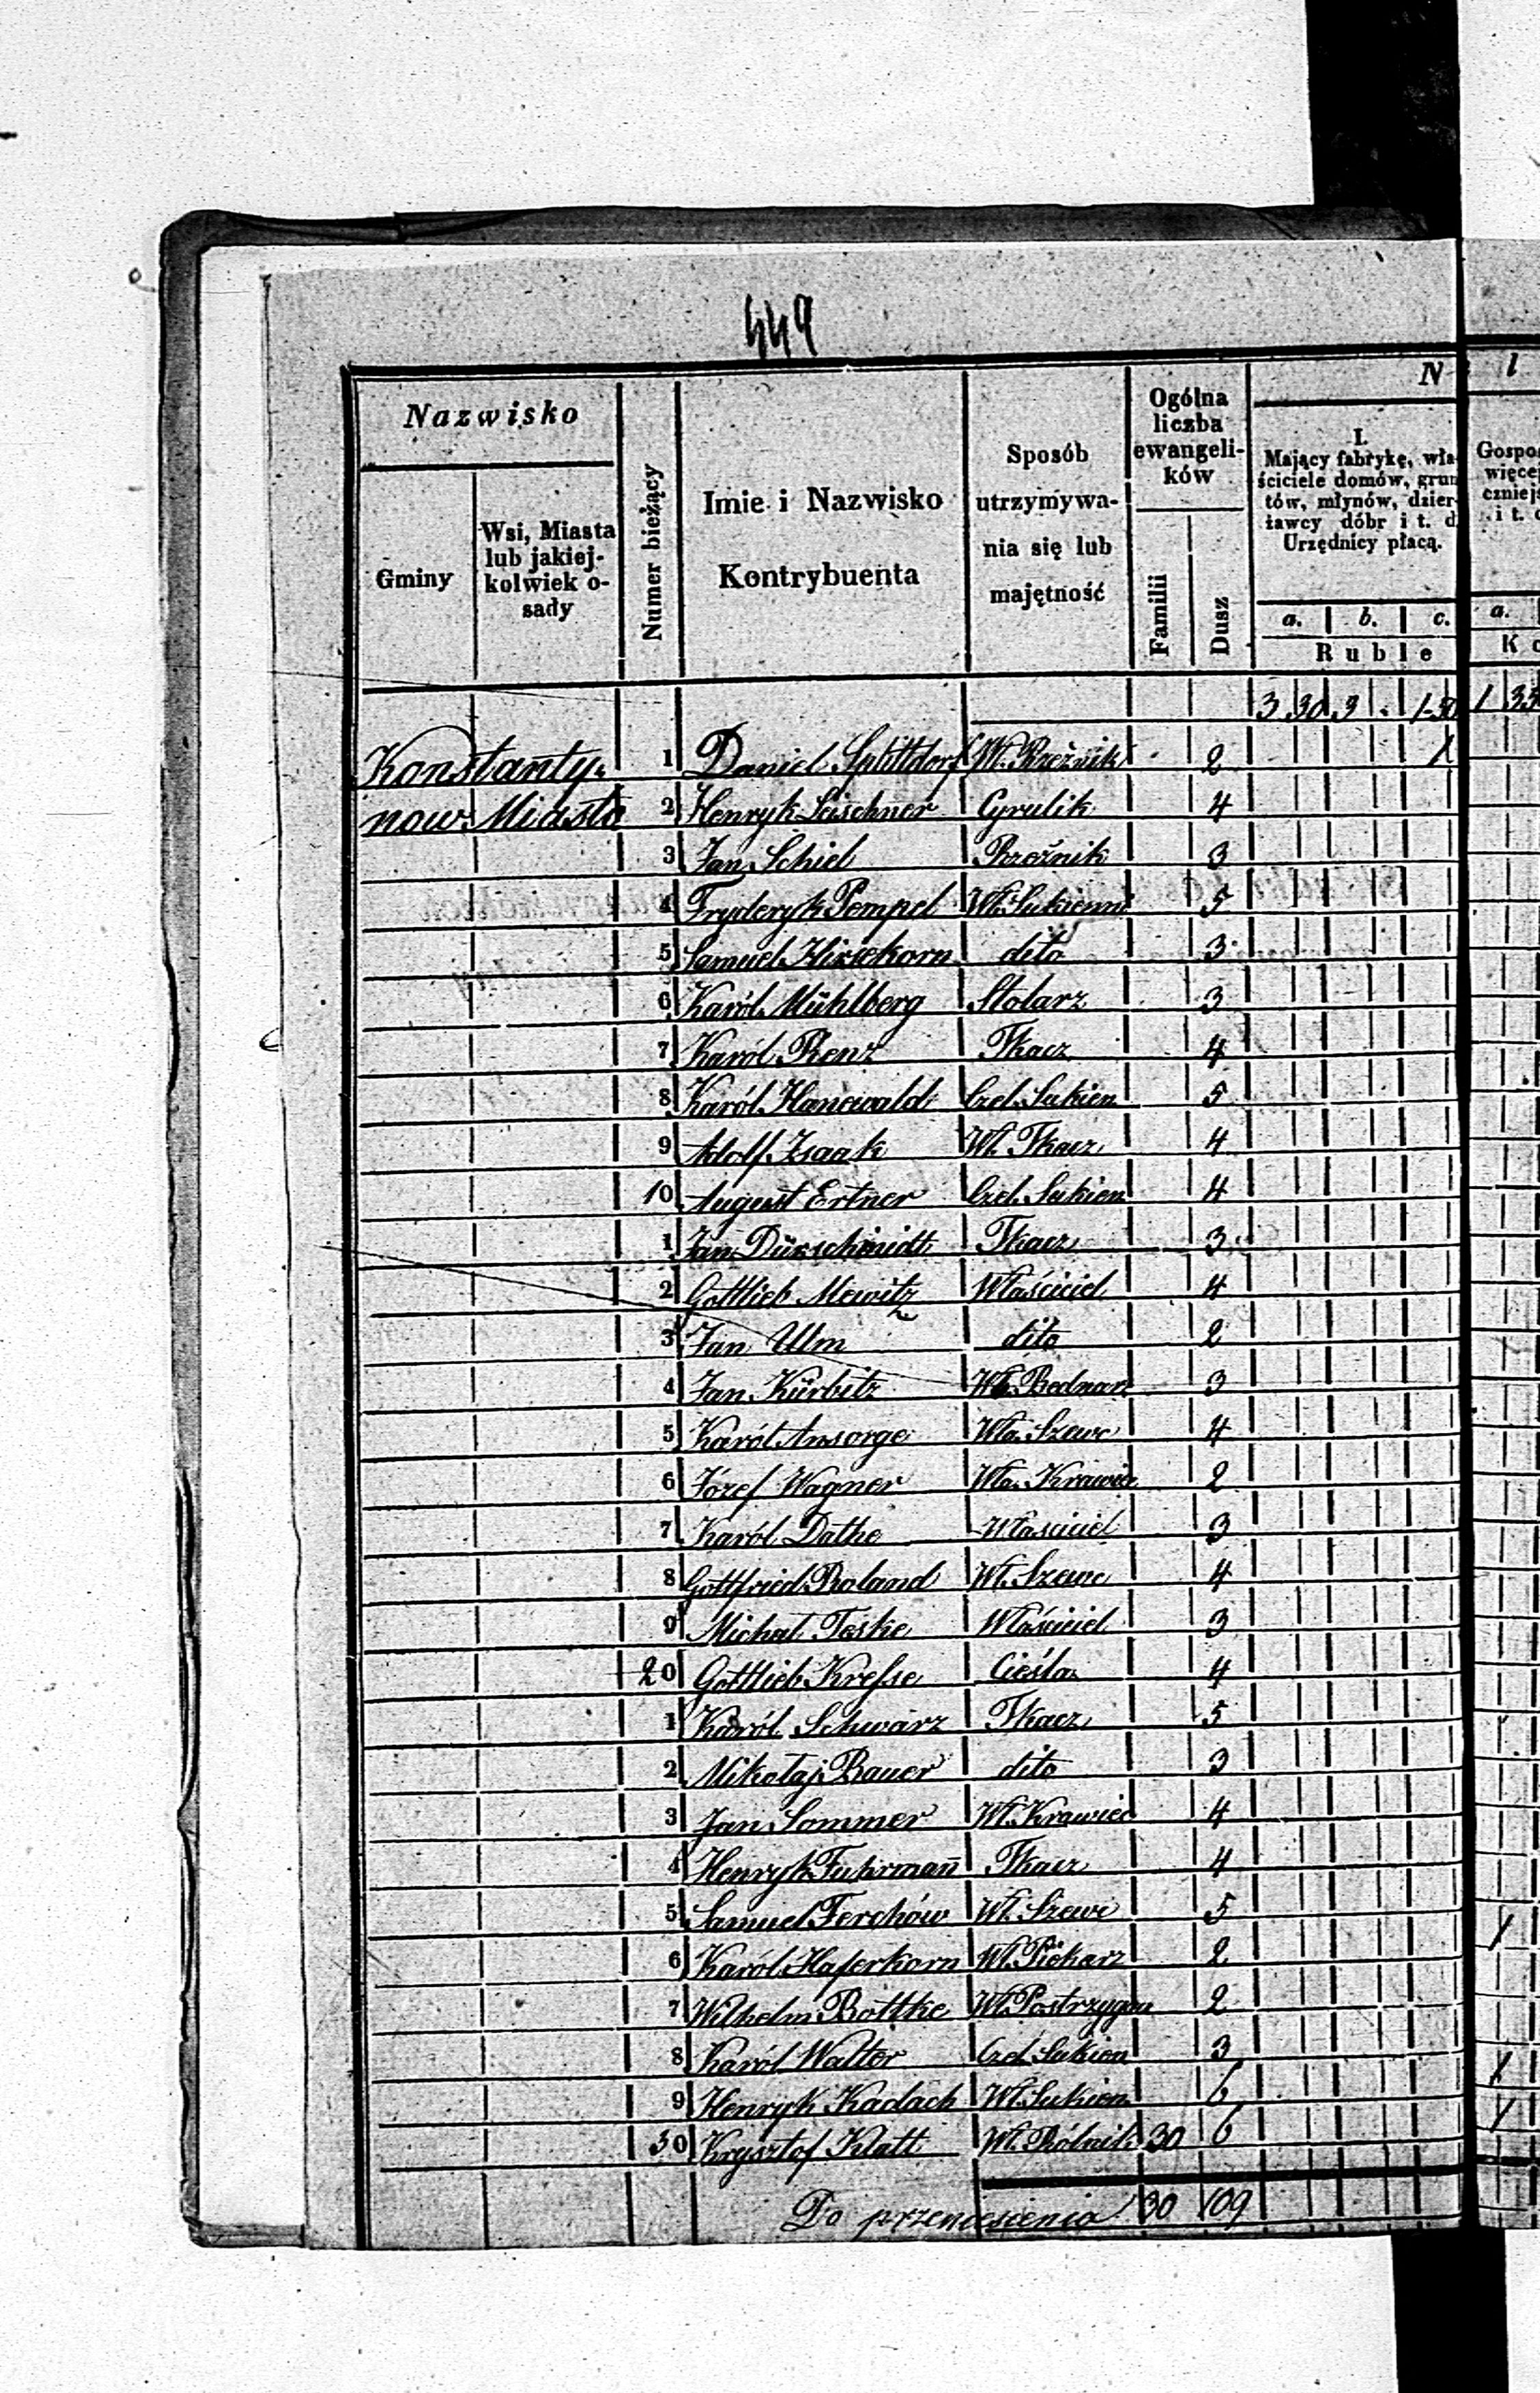 449
Nazwisko
Gminy
Wsi, Miasta lub jakiej-kolwiek o-sady
Numer bieżący
Imie i Nazwisko Kontrybuenta
Sposób utrzymywa-nia się lub majętność
Ogólna liczba ewangeli-ków
Familii
Dusz
N
I.
Mający fabrykę, wła-
ściciele domów, grun
tów, młynów, dzier-
żawcy dóbr i t. d.
Urzędnicy płacą.
a. b. c.
Ruble
3 30 3 . 1 50
1 33
Konstanty- 1 Daniel Splittdorf Wł. Rzeźnik 2 1
now. Miasto 2 Henryk Leischner Cyrulik 4
3 Jan Schiel Rzeźnik 3
4 Fryderyk Pempel Wł. Sukienni 5
5 Samuel Hirsekorn dito 3
6 Karól Mühlberg Stolarz 3
7 Karól Renz Tkacz 4
8 Karól Hanewald Czel. Sukien 5
9 Adolf Izaak Wł. Tkacz 4
10 August Ertner Czel. Sukien 4
1 Jan Dürschmidt Tkacz 3
2 Gottlieb Mewitz Właściciel 4
3 Jan Ulm dito 2
4 Jan Kürbitz Wł. Bednarz 3
5 Karól Ansorge Wła. Szewc 4
6 Józef Wagner Wła. Krawiec 2
7 Karól Dathe Własciciel 3
8 Gottfried Roland Wł. Szewc 4
9 Michał Teske Właściciel 3
20 Gottlieb Kreſse Cieśla 4
1 Karól Schwarz Tkacz 5
2 Mikołaj Bauer dito 3
3 Jan Sommer Wł. Krawiec 4
4 Henryk Fuhrmañ Tkacz 4
5 Samuel Ferchów Wł. Szewc 5
6 Karól Haferkorn Wł. Piekarz 2
7 Wilhelm Bottke Wł. Postrzygacz 2
8 Karól Walter Czel. Sukien 3
9 Henryk Kadach Wł. Sukien 6
30 Krysztof Klatt Wł. Rólnik 30 6
Do przeniesienia 30 109